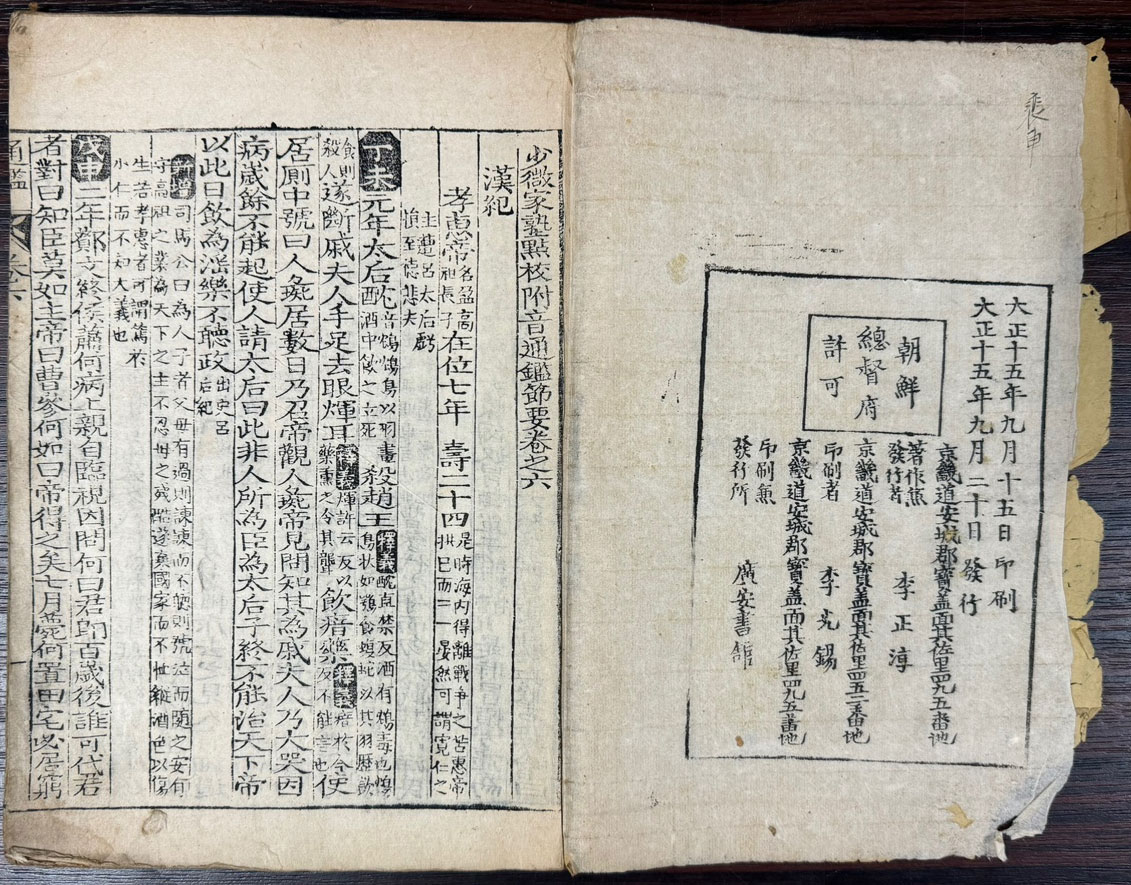 大正十五年九月十五日印刷
大正十五年九月二十日發行
朝鮮
總督府
許可
京畿道安城郡寶盖面其佐里四九五番地
著作兼
發行者 李正淳
京畿道安城郡寶盖面其佐里四五二番地
印刷者 李光錫
京畿道安城郡寶盖面其佐里四九五番地
印刷兼
發行所 廣安書館
少微家塾點校附音通鑑節要卷之六
漢紀
孝惠帝 名盈高祖長子 在位七年 壽二十四 是時海内得離戰爭之苦惠帝拱已而 晏然可謂寬仁之
主遭呂太后虧
損至德悲夫
丁未元年太后酖 音鴆鴆鳥以羽畫酒中飲之立死 殺趙王 釋義酖直禁反酒有鴆毒也 鳥狀如鶚食蝮蛇以其羽歷飲
食則殺人 遂斷戚夫人手足去眼煇耳 釋義煇許云反以藥熏之令其聾 飲瘖藥 釋義瘖於今反不能言也 使
居厠中號曰人彘居數日乃召帝觀人彘帝見問知其為戚夫人乃大哭因
病歲餘不能起使人請太后曰此非人所為臣為太后子終不能治天下帝
以此日飲為淫樂不聽政 出史呂后紀
新增司馬公曰為人子者父母有過則諫諫而不聽則號泣而隨之安有
守高祖之業為天下之主不忍母之殘酷遂棄國家而不恤縱酒色以傷
生若孝惠者可謂篤於
小仁而不知大義也
戊申二年鄼文終侯蕭何病上親自臨視因問何曰君即百歲後誰可代君
者對曰知臣莫如主帝曰曹參何如曰帝得之矣七月薨何置田宅必居窮
通鑑 卷六